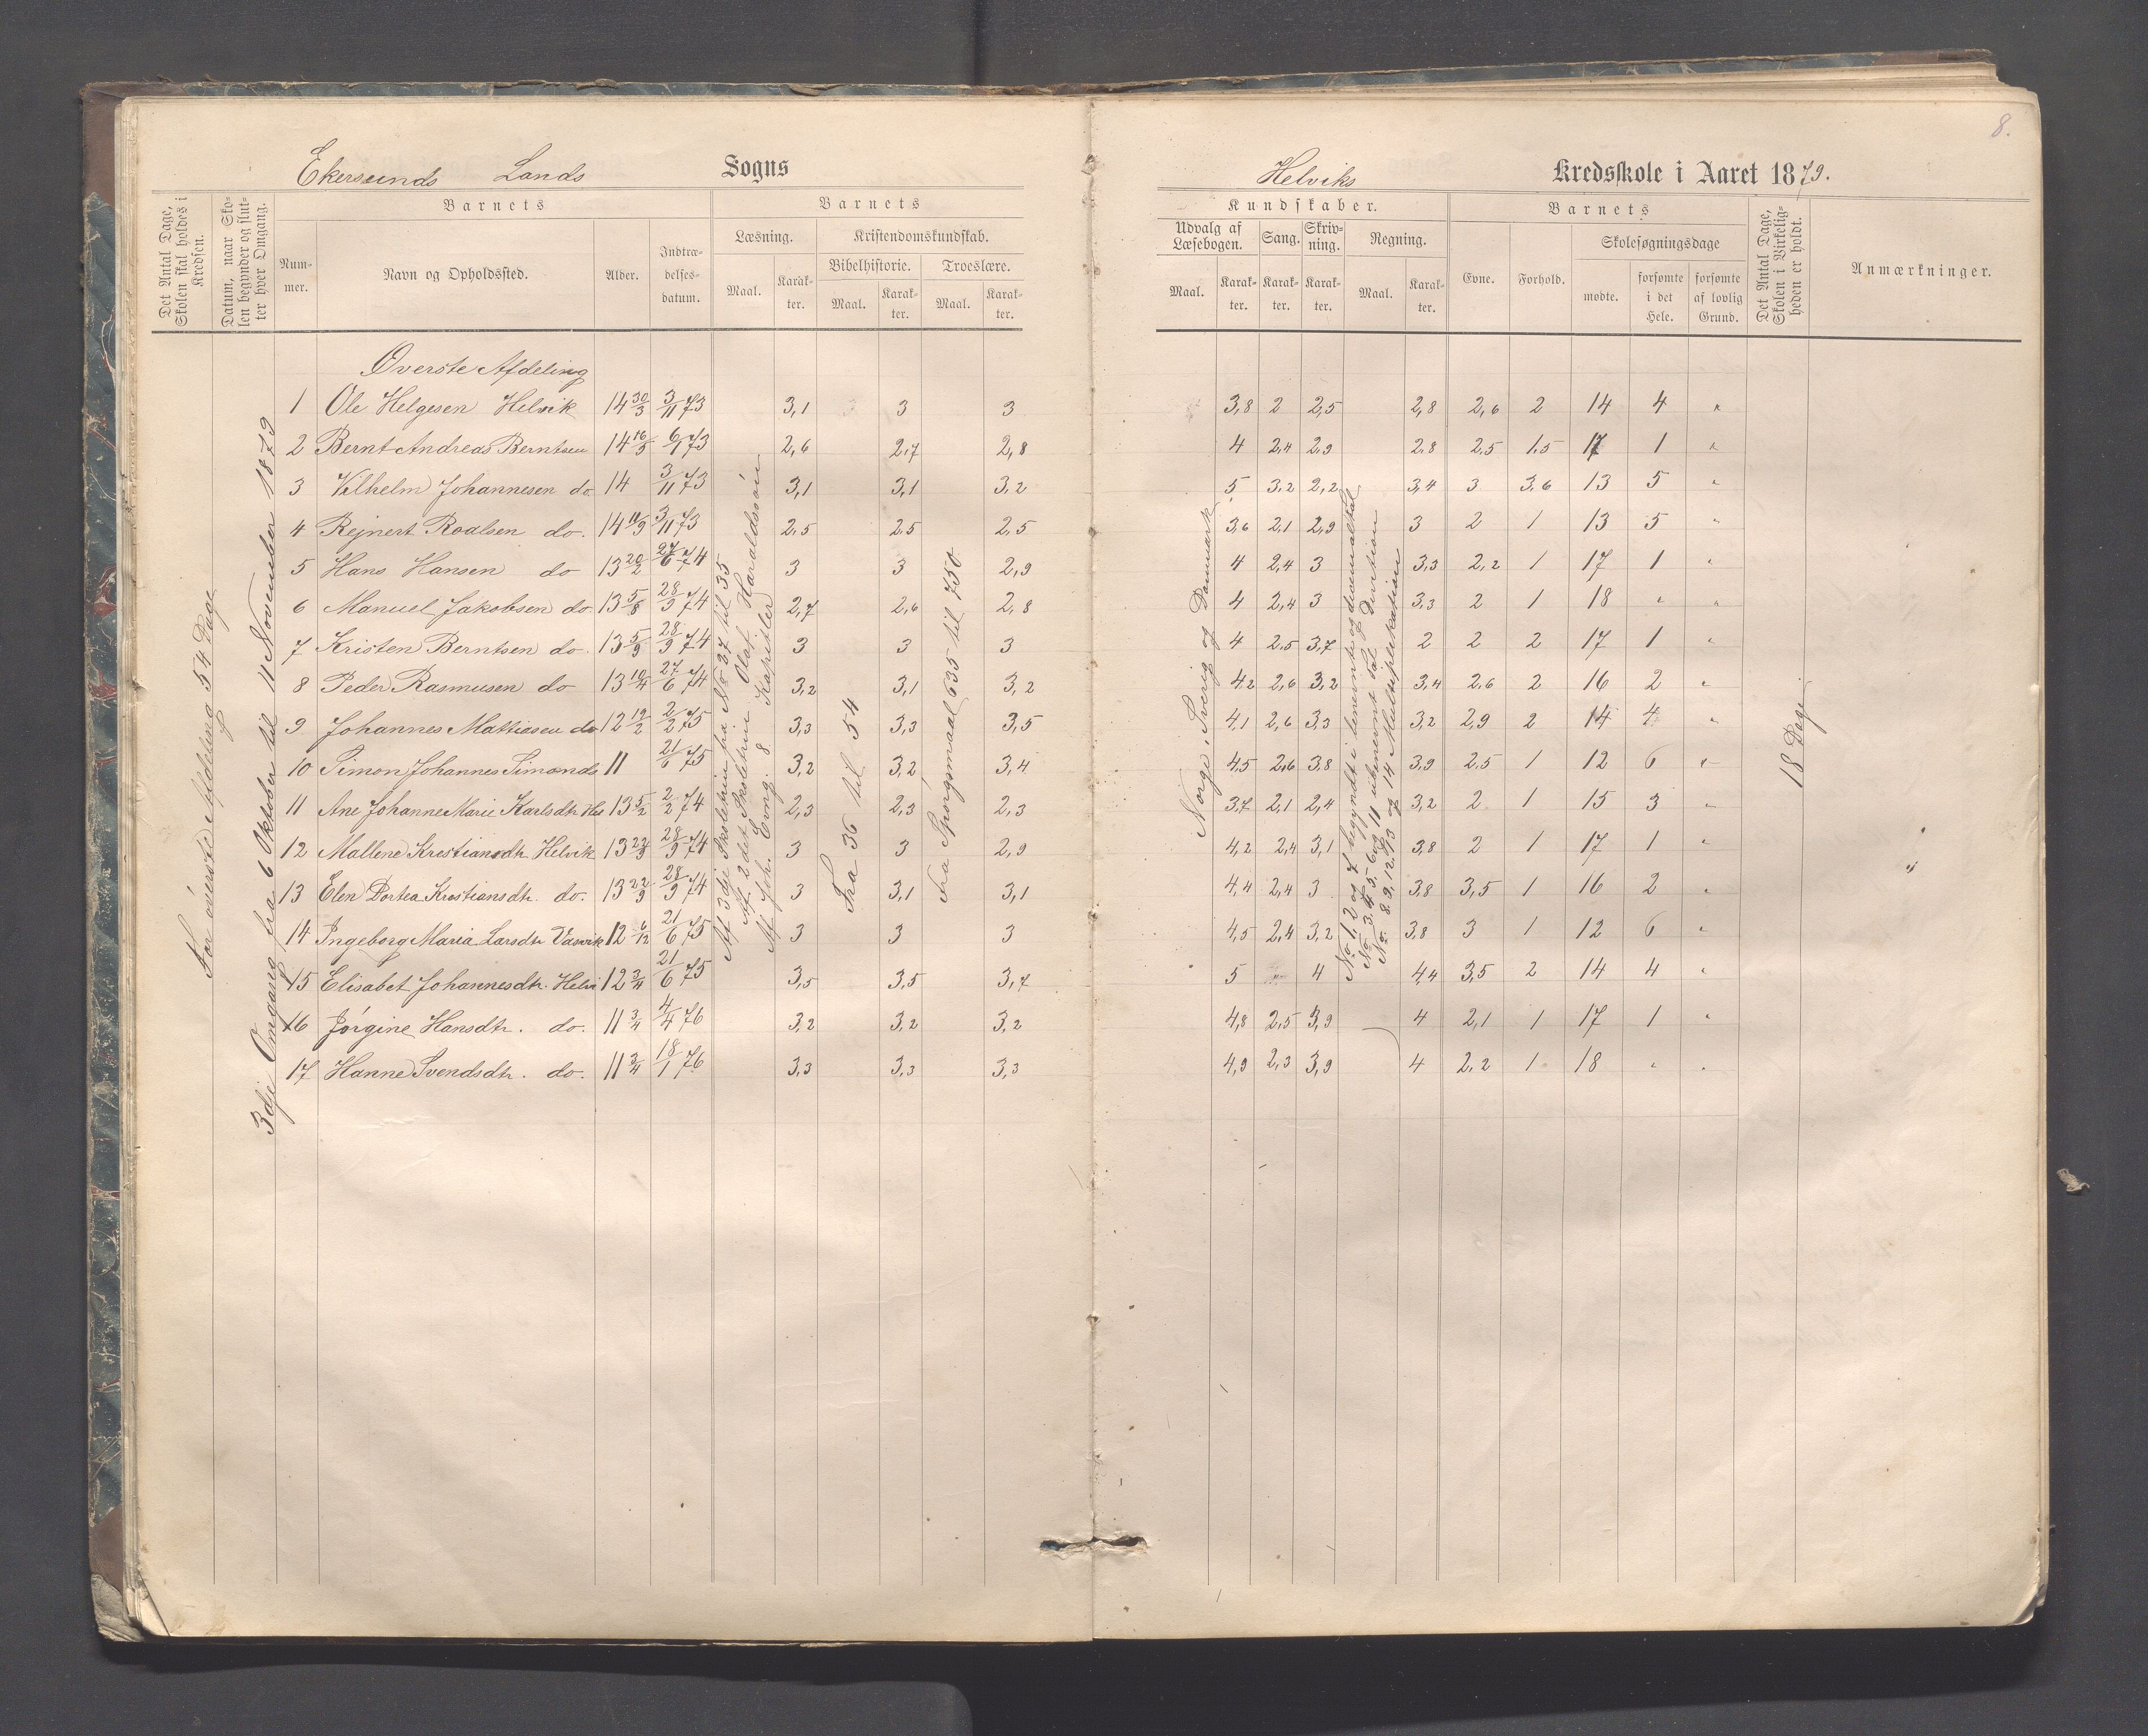 8.
Ekersunds Lands Sogns
Helviks Kredsskole i Aaret 1879.
Det Antal Dage, Skolen skal holdes i Kredsen.
Datum, naar Skolen begynder og slutter hver Omgang.
Barnets
Nummer.
Navn og Opholdssted.
Alder.
Indtrædelsesdatum.
Barnets
Læsning.
Maal.
Karakter.
Kristendomskundskab.
Bibelhistorie.
Maal.
Karakter.
Troeslære.
Maal.
Karakter.
Kundskaber.
Udvalg af Læsebogen.
Maal.
Karakter.
Sang.
Karakter.
Skrivning.
Karakter.
Regning.
Maal.
Karakter.
Barnets
Evne.
Forhold.
Skolesøgningsdage
mødte.
forsømte i det Hele.
forsømte af lovlig Grund.
Det Antal Dage, Skolen i Virkeligheden er holdt.
Anmærkninger.
Øverste Afdeling
1 Ole Helgesen Helvik 14 30/3 3/11 73 3,1 3 3 3,8 2 2,5 2,8 2,6 2 14 4 "
2 Bernt Andreas Berntsen 14 16/5 6/1 73 2,6 2,7 2,8 4 2,4 2,9 2,8 2,5 1,5 17 1 "
3 Vilhelm Johannesen do 14 3/11 73 3,1 3,1 3,2 5 3,2 2,2 3,4 3 3,6 13 5 "
4 Rejnert Roalsen do. 14 11/9 3/11 73 2,5 2,5 2,5 3,6 2,1 2,9 3 2 1 13 5 "
5 Hans Hansen do 13 20/2 27/6 74 3 3 2,9 4 2,4 3 3,3 2,2 1 17 1 "
6 Manuel Jakobsen do. 13 5/8 28/9 74 2,7 2,6 2,8 4 2,4 3 3,3 2 1 18 " "
7 Kristen Berntsen do. 13 5/9 28/9 74 3 3 3 4 2,5 3,7 2 2 2 17 1 "
8 Peder Rasmusen do 13 10/4 27/6 74 3,2 3,1 3,2 4,2 2,6 3,2 3,4 2,6 2 16 2 "
9 Johannes Mattiesen do 12 19/2 2/2 75 3,3 3,3 3,5 4,1 2,6 3,3 3,2 2,9 2 14 4 "
10 Simon Johannes Simonds 11 21/6 75 3,2 3,2 3,4 4,5 2,6 3,8 3,9 2,5 1 12 6 "
11 Ane Johanne Marie Karlsdtr. Hel 13 5/2 2/2 74 2,3 2,3 2,3 3,7 2,1 2,4 3,2 2 1 15 3 "
12 Mallene Krestiansdtr Helvik 13 22/9 28/9 74 3 3 2,9 4,2 2,4 3,1 3,8 2 1 17 1 "
13 Elen Dortea Krestiansdtr. do. 13 22/9 28/9 74 3 3,1 3,1 4,4 2,4 3 3,8 3,5 1 16 2 "
14 Ingeborg Maria Larsdtr Vasvik 12 6/12 21/6 75 3 3 3 4,5 2,4 3,2 3,8 3 1 12 6 "
15 Elisabet Johannesdtr. Helvi 12 3/4 21/6 75 3,5 3,5 3,7 5 " 4 4,4 3,5 2 14 4 "
16 Jørgine Hansdtr. do. 11 3/4 4/4 76 3,2 3,2 3,2 4,8 2,5 3,9 4 2,1 1 17 1 "
17 Hanne Svendsdtr. do. 11 3/4 18/1 76 3,3 3,3 3,3 4,9 2,3 3,9 4 2,2 1 18 " "
For øverste Afdeling 54 Dage
3dje Omgang fra 6 Oktober til 11 November 1879
Af 3dje Skoletrin fra No 27 til 35
Af 2det Skoletrin Olaf Haraldsøn
Af Joh. Evng. 8 Kapitler
Fra 36 til 54
Fra Spørgsmaal 635 til 750
Norge, Sverig og Danmark
No 1, 2 og 7 begyndt i benevnte og decimaltal
No. 3, 4, 5, 6 og 11 ubenevnt Tal Division
No. 8, 9, 12, 13 og 14 Multiplekation
18 Dage